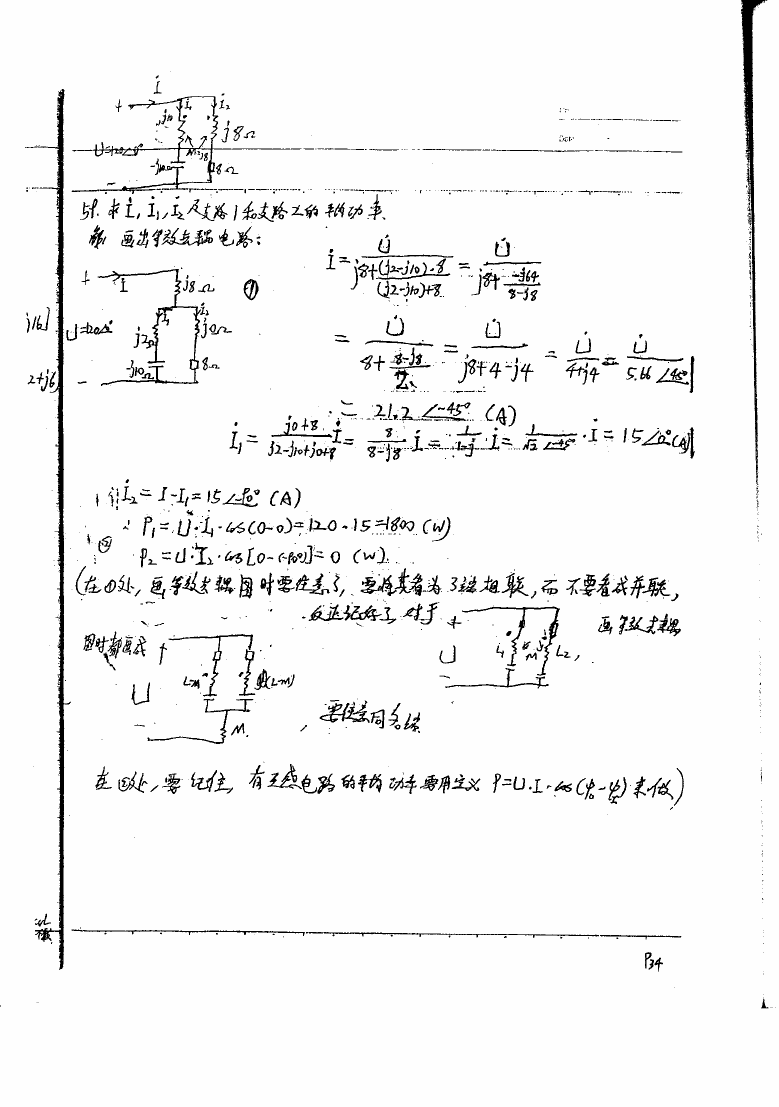 İ
+ İ₁ İ₂
j10 j8Ω
U̇=120∠0° M=j8
-j10Ω 8Ω
-
59. 求İ, İ₁, İ₂及支路1和支路2的平均功率.
解 画出等效去耦电路:
+ İ j8Ω ①
U̇=120∠0° j2Ω İ₁ j0Ω
-j10Ω 8Ω
-
İ = U̇/(j8+((j2-j10)·8)/((j2-j10)+8)) = U̇/(j8+(-j64)/(8-j8))
= U̇/(8+(8-j8)/2) = U̇/(j8+4-j4) = U̇/(4+j4) = U̇/(5.66∠45°)
= 21.2∠-45° (A)
İ₁ = (j0+8)/(j2-j10+j0+8) İ = 8/(8-j8) İ = 1/(1-j)·İ = 1/(√2∠-45°)·İ = 15∠0°(A)
İ₂ = I-I₁ = 15∠-90° (A)
∴ P₁ = U·I₁·cos(0-0) = 120·15 = 1800 (W)
② P₂ = U·I₂·cos[0-(-90°)] = 0 (W).
(在①处, 画等效去耦图时要注意了, 要将其看为3端相联, 而不要看成并联,
反正记好了, 对于 + U - L₁ M L₂, 画等效去耦
图时都画成 + U - L-M (L-M) M, 要注意同名端
在②处, 要记住, 有互感电路的平均功率要用定义 P=U·I·cos(φu-φi)来做)
j16]
2+j6
P34